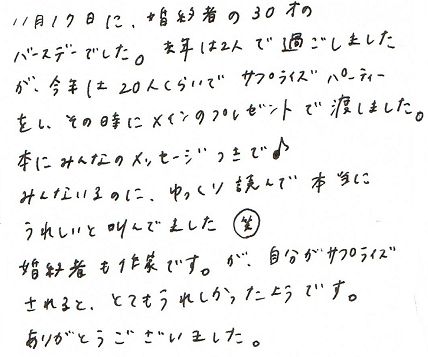 11月17日に、婚約者の30才の
バースデーでした。去年は2人で過ごしました
が、今年は20人くらいでサプライズパーティー
をし、その時にメインのプレゼントで渡しました。
本にみんなのメッセージつきで♪
みんないるのに、ゆっくり読んで本当に
うれしいと叫んでました(笑)
婚約者も作家です。が、自分がサプライズ
されると、とてもうれしかったようです。
ありがとうございました。